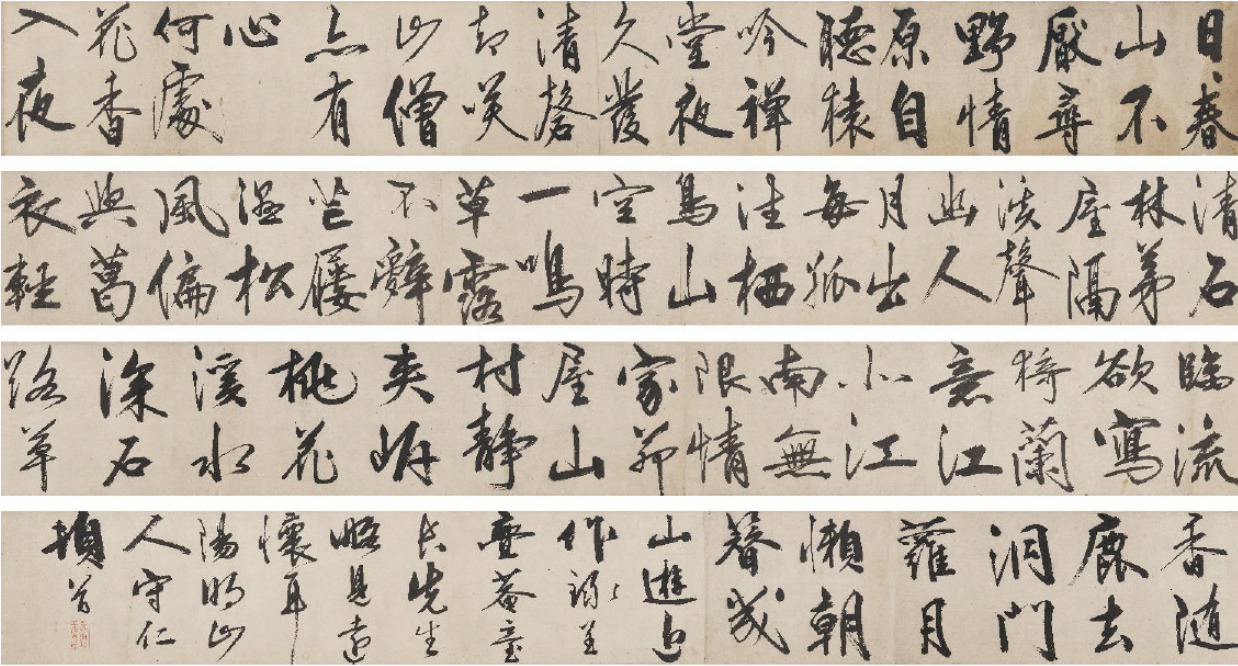 日〻春
山不
厭尋
野情
原自
聽猿
吟禅
堂夜
久發
清磬
却咲
山僧
亦有
心
何處
花香
入夜
清石
林茅
屋隔
溪聲
幽人
月出
每孤
往栖
鳥山
空時
一鳴
草露
不辭
芒屨
湿松
風偏
與葛
衣輕
臨流
欲寫
猗蘭
意江
北江
南無
限情
家茆
屋山
村静
夾岸
桃花
溪水
深石
路草
香随
鹿去
洞門
蘿月
懶朝
簪幾
山遊近
作録呈
菴憲
長先生
略見遠
懷耳
陽明山
人守仁
頓首